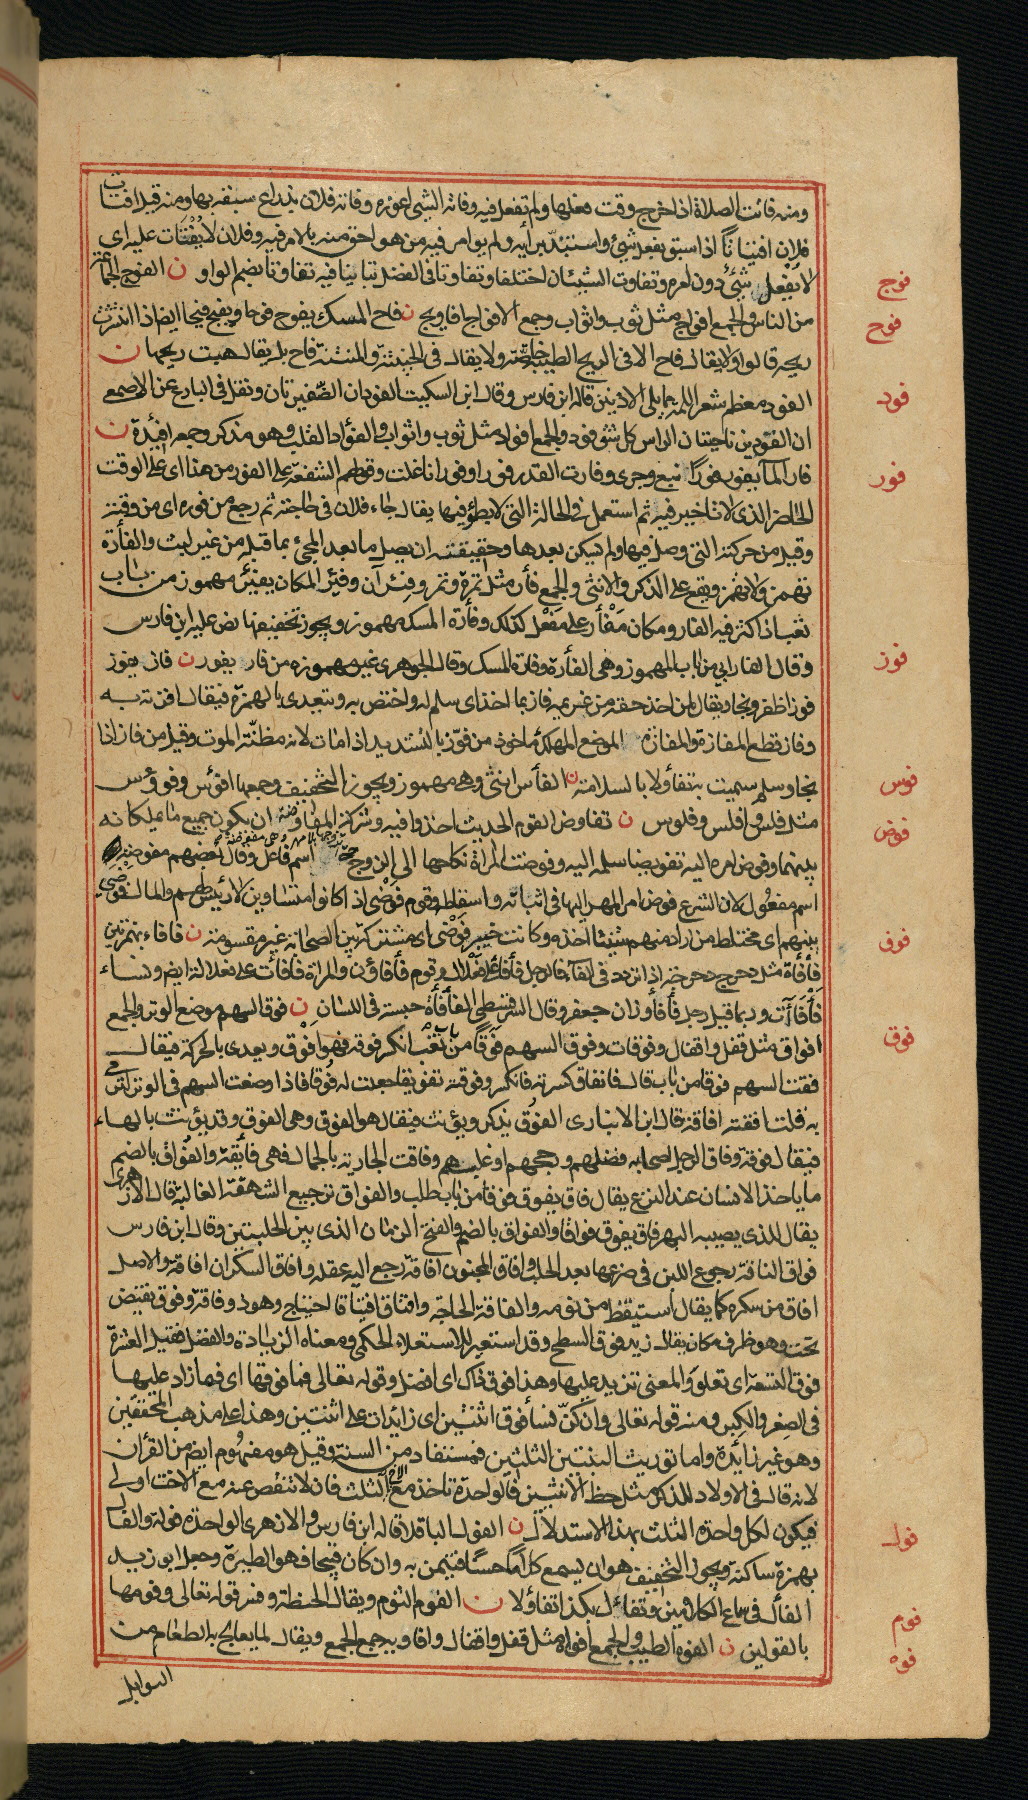 ومنه فاتت الصلاة اذا خرج وقت فعلها ولم تفعل فيه وفاته الشئ اعوزه وفاته فلان بذراع سبقه بها ومنه قيل افتات
فلان افتياتا اذا سبق بفعل شئ واستبد برأيه ولم يوامر فيه من هو احق منه بالامر فيه وفلان لا يفتات عليه اى
لا يفعل شئ دون امره وتفاوت الشيئان اختلفا وتفاوتا فى الفضل تباينا فيه تفاوتا بضم الواو ن الفوج الجماعة
فوج
من الناس والجمع افواج مثل ثوب واثواب وجمع الافواج افاويج ن فاح المسك يفوح فوحا ويفيح فيحا ايضا اذا انتشرت
فوح
ريحه قالوا ولا يقال فاح الا فى الريح الطيبة خاصة ولا يقال فى الخبيثة والمنتنة فاح بل يقال هبت ريحها ن
الفود معظم شعر اللمة مما يلى الاذنين قاله ابن فارس وقال ابن السكيت الفودان الضفيرتان ونقل فى البارع عن الاصمعى
فود
ان الفودين ناحيتا الراس كل شق فود والجمع افواد مثل ثوب واثواب والفؤاد القلب وهو مذكر وجمعه افئدة ن
فار الماء يفور فورا نبع وجرى وفارت القدر فورا وفورانا غلت وقولهم الشفعة على الفور من هذا اى على الوقت
فور
الحاضر الذى لا تاخير فيه ثم استعمل فى الحالة التى لا بطؤ فيها يقال جاء فلان فى حاجته ثم رجع من فوره اى من وقته
وقيل من حركته التى وصل فيها ولم يسكن بعدها وحقيقته ان يصل ما بعد المجئ بما قبله من غير لبث والفأرة
تهمز ولا تهمز ويقع على الذكر والانثى والجمع فأر مثل تمرة وتمر وفئر المكان يفئر مهموز من باب
تعب اذا كثر فيه الفار ومكان مفأر على مفعل كذلك وفأرة المسك مهموز ويجوز تخفيفها نص عليه ابن فارس
وقال الفارابى من باب المهموز وهى الفأرة وفارة المسك وقال الجوهرى غير مهموزة من فار يفور ن فاز يفوز
فوز
فوزا ظفر ونجا ويقال لمن اخذ حقه من غريمه فاز بما اخذ اى سلم له واختص به ويتعدى بالهمزة فيقال افزته به
وفاز قطع المفازة والمفازة الموضع المهلك ماخوذ من فوز بالتشديد اذا مات لانه مظنة الموت وقيل من فاز اذا
نجا وسلم سميت به تفاؤلا بالسلامة ن الفأس انثى وهى مهموز ويجوز التخفيف وجمعها افؤس وفؤوس
فوس
مثل فلس وافلس وفلوس ن تفاوض القوم الحديث اخذوا فيه وشركة المفاوضة ان يكون جميع ما يملكانه
فوض
بينهما وفوض امره اليه تفويضا سلمه اليه وفوضت المراة نكاحها الى الزوج اسم فاعل وقال بعضهم مفوضة
اسم مفعول لان الشرع فوض امر المهر اليها فى اثباته واسقاطه وقوم فوضى اذا كانوا متساوين لا رئيس لهم والمال فوضى
بينهم اى مختلط من اراد منهم شيئا اخذه وكانت خيبر فوضى اى مشتركة بين الصحابة غير مقسومة ن فافاء بهمزتين
فوف
فأفأة مثل دحرج دحرجة اذا تردد فى الفاء فالرجل فأفاء على فعلال وقوم فأفاؤن والمراة فأفأة على فعلالة ايضا ونساء
فأفاآت وربما قيل رجل فأفأ وزان جعفر وقال السرقسطى الفأفأة حبسة فى اللسان ن فوق السهم موضع الوتر والجمع
افواق مثل قفل واقفال وفوقات وفوق السهم فوقا من باب تعب انكسر فوقه فهو افوق ويعدى بالحركة فيقال
فوق
فقت السهم فوقا من باب قال فانفاق كسرته فانكسر وفوقته تفويقا جعلت له فوقا فاذا وضعت السهم فى الوتر لترمى
به قلت افقته افاقة قال ابن الانبارى الفوق يذكر ويؤنث فيقال هو الفوق وهى الفوق وقد يؤنث بالهاء
فيقال فوقة وفاق الرجل اصحابه فضلهم ورجحهم او غلبهم وفاقت الجارية بالجمال فهى فائقة والفواق بالضم
ما ياخذ الانسان عند النزع يقال فاق يفوق فوقا من باب طلب والفواق ترجيع الشهقة الغالبة قال الازهرى
يقال للذى يصيبه البهر فاق يفوق فواقا والفواق بالضم والفتح الزمان الذى بين الحلبتين وقال ابن فارس
فواق الناقة رجوع اللبن فى ضرعها بعد الحلب وافاق المجنون افاقة رجع اليه عقله وافاق السكران افاقة والاصل
افاق من سكره كما يقال استيقظ من نومه والفاقة الحاجة وافتاق افتياقا احتاج وهو ذو فاقة وفوق نقيض
تحت وهو ظرف مكان يقال زيد فوق السطح وقد استعير للاستعلاء الحكمى ومعناه الزيادة والفضل فقيل العشرة
فوق التسعة اى تعلو والمعنى تزيد عليها وهذا فوق ذاك اى افضل وقوله تعالى فما فوقها اى فما زاد عليها
فى الصغر والكبر ومنه قوله تعالى وان كن نساء فوق اثنتين اى زائدات على اثنتين وهذا على مذهب المحققين
وهو غير زائدة واما توريث البنتين الثلثين فمستفاد من السنة وقيل هو مفهوم ايضا من القرآن
لانه قال فى الاولاد للذكر مثل حظ الانثيين فالواحدة تاخذ مع الاخ الثلث فان لا تنقص عنه مع الاخت اولى
فيكون لكل واحدة الثلث بهذا الاستدلال ن الفول الباقلا قاله ابن فارس والازهرى الواحدة فولة والفأل
فول
بهمزة ساكنة ويجوز التخفيف هو ان يسمع كلاما حسنا فتيمن به وان كان قبيحا فهو الطيرة وجعل ابو زيد
الفأل فى سماع الكلامين وتفاءل بكذا تفاؤلا ن الفوم الثوم ويقال الحنطة وفسر قوله تعالى وفومها
فوم
بالقولين ن الفوه الطيب والجمع افواه مثل قفل واقفال وافاويه جمع الجمع ويقال لما يعالج به الطعام من
فوه
التوابل